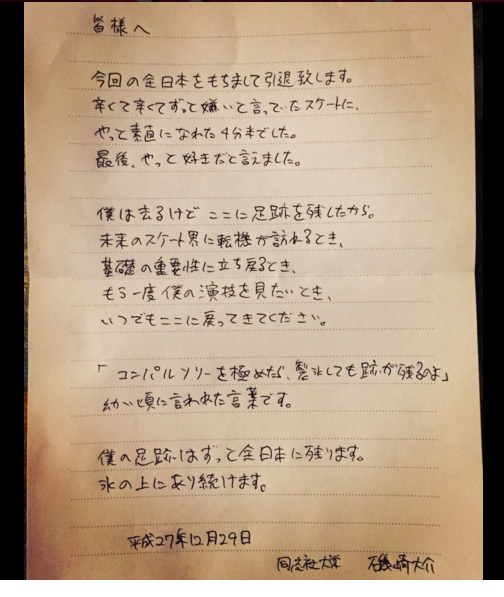 皆様へ
今回の全日本をもちまして引退致します。
辛くて辛くてずっと嫌いと言っていたスケートに、
やっと素直になれた4分半でした。
最後、やっと好きだと言えました。
僕は去るけど ここに足跡を残したから。
未来のスケート界に転機が訪れるとき、
基礎の重要性に立ち戻るとき、
もう一度 僕の演技を見たいとき、
いつでもここに戻ってきてください。
「コンパルソリーを極めたら、製氷しても跡が残るのよ」
幼い頃に言われた言葉です。
僕の足跡はずっと全日本に残ります。
氷の上にあり続けます。
平成27年12月29日
同志社大学 磯崎大介